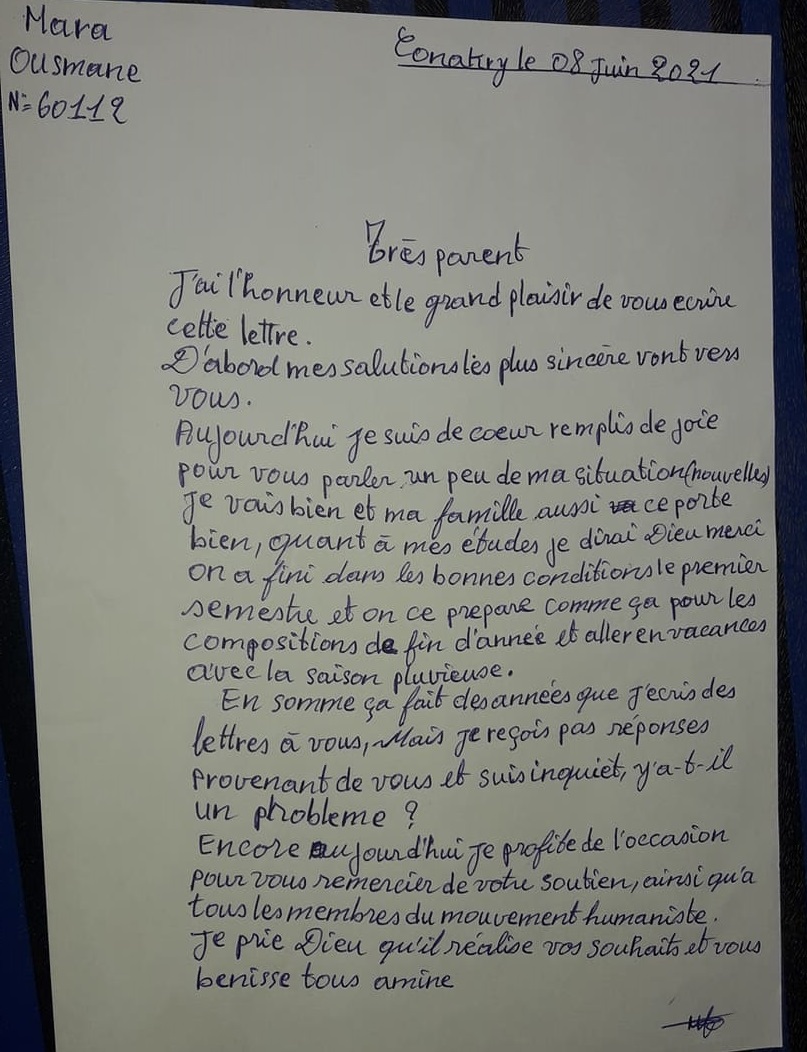 Mara
Ousmane
N°=60112
Conakry le 08 Juin 2021
Très parent
J'ai l'honneur et le grand plaisir de vous ecrire
cette lettre.
D'abord mes salutions les plus sincère vont vers
vous.
Aujourd'hui je suis de coeur remplis de joie
pour vous parler un peu de ma situation (nouvelles)
je vais bien et ma famille aussi va ce porte
bien, quant à mes études je dirai Dieu merci
on a fini dans les bonnes conditions le premier
semestre et on ce prepare comme ça pour les
compositions de fin d'année et aller en vacances
avec la saison pluvieuse.
En somme ça fait des années que j'ecris des
lettres à vous, Mais je reçois pas réponses
provenant de vous et suis inquiet, y'a-t-il
un probleme ?
Encore aujourd'hui je profite de l'occasion
pour vous remercier de votre soutien, ainsi qu'a
tous les membres du mouvement humaniste.
Je prie Dieu qu'il réalise vos souhaits et vous
benisse tous amine